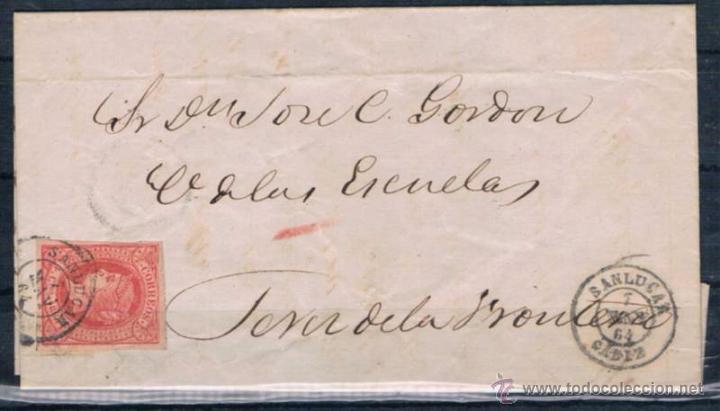 Sr Dn Jose C. Gordon
C. de las Escuelas
Jerez de la Frontera
SANLUCAR
CORREOS
SANLUCAR
7
64
CADIZ
todocoleccion.net